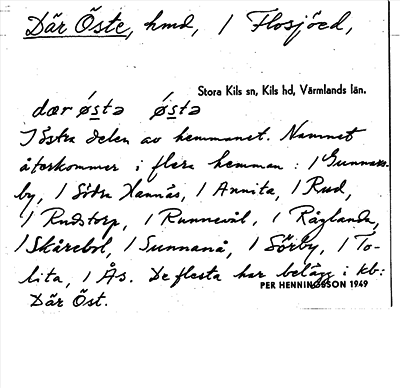 Där Öste, hmd, / Flosjöed,
Stora Kils sn, Kils hd, Värmlands län.
dær östə östə
I östra delen av hemmanet. Namnet
återkommer i flera hemman: / Gunnars-
by, / Södra Hannäs, / Annita, / Rud,
/ Rudstorp, / Runnevål, / Råglanda,
/ Skårebol, / Sunnanå, / Sörby, / To-
lita, / Ås. De flesta har belägg i kb:
PER HENNINGSSON 1949
Där Öst.